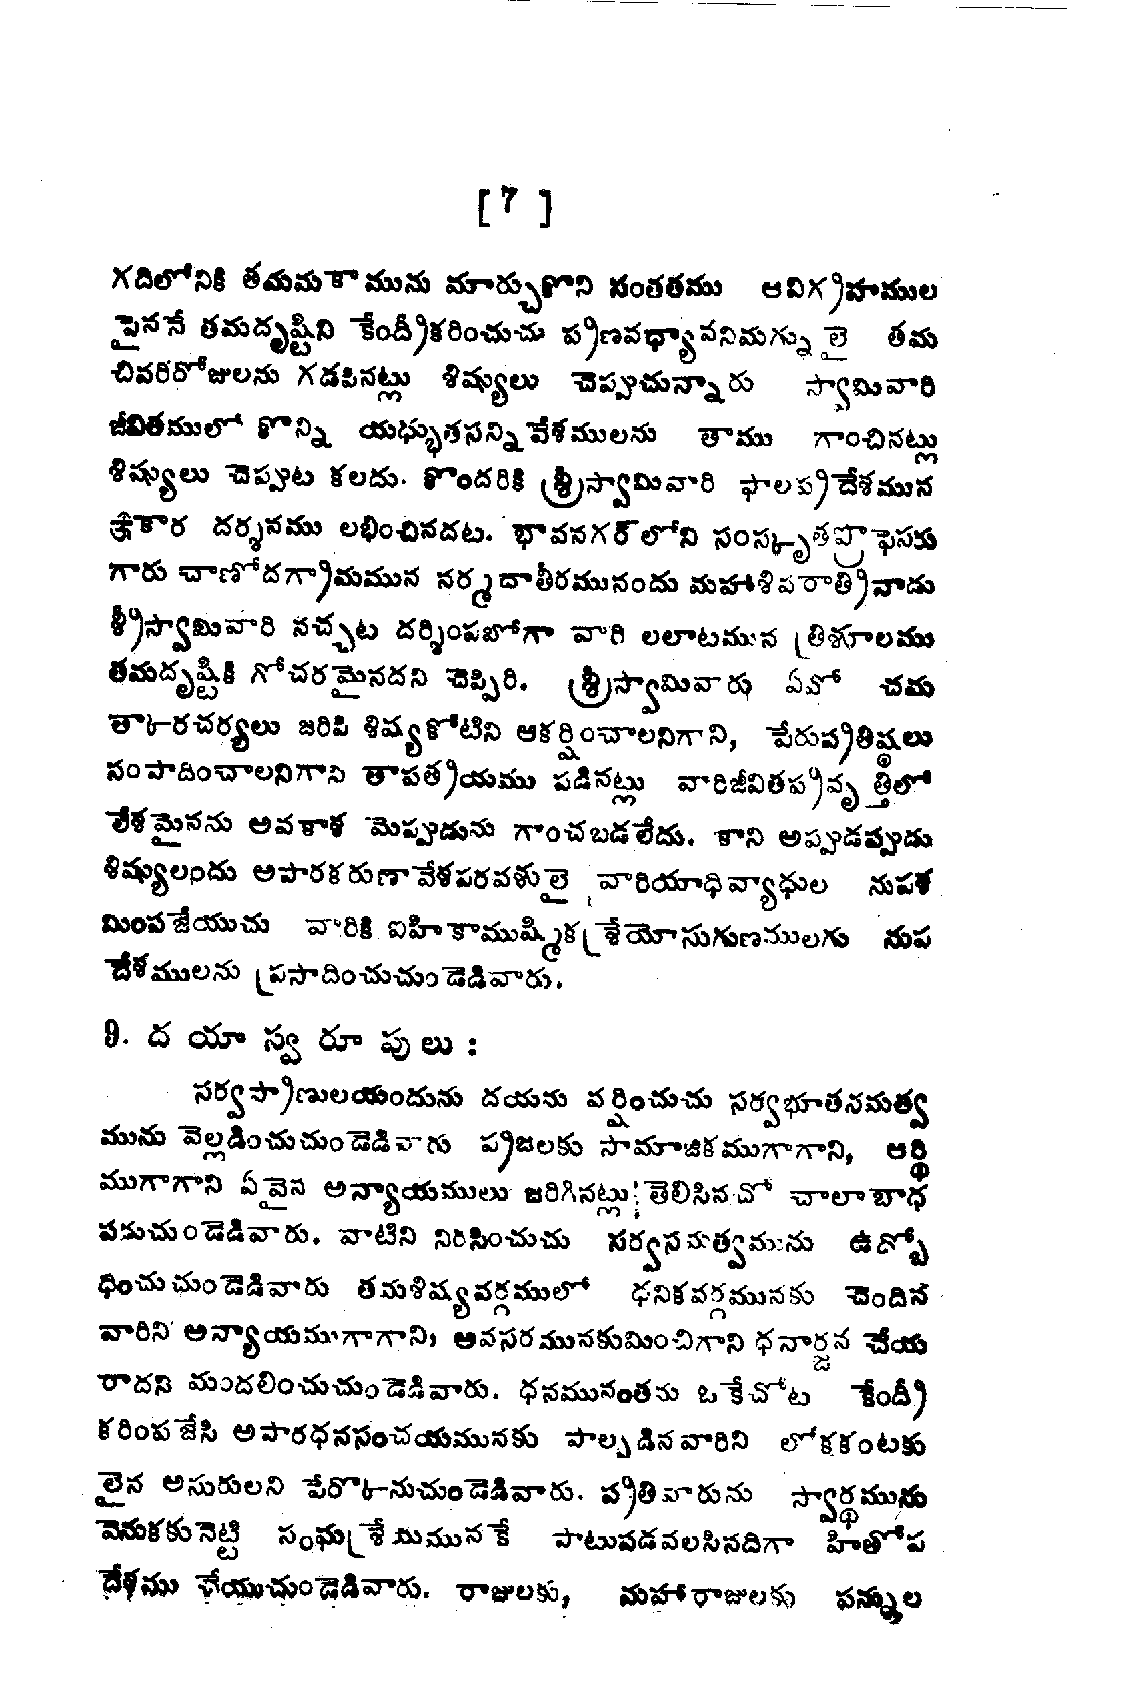 [ 7 ]
గదిలోనికి తమమకామును మార్చుకొని సంతతము ఆవిగ్రహముల
పైననే తమదృష్టిని కేంద్రీకరించుచు ప్రణవధ్యావనిమగ్ను లై తమ
చివరిరోజులను గడపినట్లు శిష్యులు చెప్పుచున్నారు స్వామివారి
జీవితములో కొన్ని యద్భుతసన్నివేశములను తాము గాంచినట్లు
శిష్యులు చెప్పుట కలదు. కొందరికి శ్రీస్వామివారి ఫాలప్రదేశమున
శ్రీకార దర్శనము లభించినదట. భావనగర్‌లోని సంస్కృతప్రొఫెసరు
గారు చాణోదగ్రామమున నర్మదాతీరమునందు మహాశివరాత్రినాడు
శ్రీస్వామివారి నచ్చట దర్శింపబోగా వారి లలాటమున త్రిశూలము
తమదృష్టికి గోచరమైనదని చెప్పిరి. శ్రీస్వామివారు ఏవో చమ
తా్కరచర్యలు జరిపి శిష్యకోటిని ఆకర్షించాలనిగాని, పేరుప్రతిష్ఠలు
సంపాదించాలనిగాని తాపత్రయము పడినట్లు వారిజీవితప్రవృత్తిలో
లేశమైనను అవకాశ మెప్పుడును గాంచబడలేదు. కాని అప్పుడప్పుడు
శిష్యులందు అపారకరుణావేశపరవశులై వారియాధివ్యాధుల నుపశ
మింపజేయుచు వారికి ఐహికాముష్మికశ్రేయోసుగుణములగు నుప
దేశములను ప్రసాదించుచుండెడివారు.
9. ద యా స్వ రూ పు లు :
సర్వప్రాణులయందును దయను వర్షించుచు సర్వభూతసమత్వ
మును వెల్లడించుచుండెడివారు ప్రజలకు సామాజికముగాగాని, ఆర్థి
ముగాగాని ఏవైన అన్యాయములు జరిగినట్లు తెలిసినచో చాలాబాధ
పడుచుండెడివారు. వాటిని నిరసించుచు సర్వసమత్వమును ఉద్బో
ధించుచుండెడివారు తమశిష్యవర్గములో ధనికవర్గమునకు చెందిన
వారిని అన్యాయముగాగాని, అవసరమునకుమించిగాని ధనార్జన చేయ
రాదని మందలించుచుండెడివారు. ధనమునంతను ఒకేచోట కేంద్రీ
కరింపజేసి అపారధనసంచయమునకు పాల్పడినవారిని లోకకంటకు
లైన అసురులని పేర్కొనుచుండెడివారు. ప్రతివారును స్వార్థమును
వెనుకకునెట్టి సంఘశ్రేయమునకే పాటుపడవలసినదిగా హితోప
దేశము చేయుచుండెడివారు. రాజులకు, మహారాజులకు పన్నుల